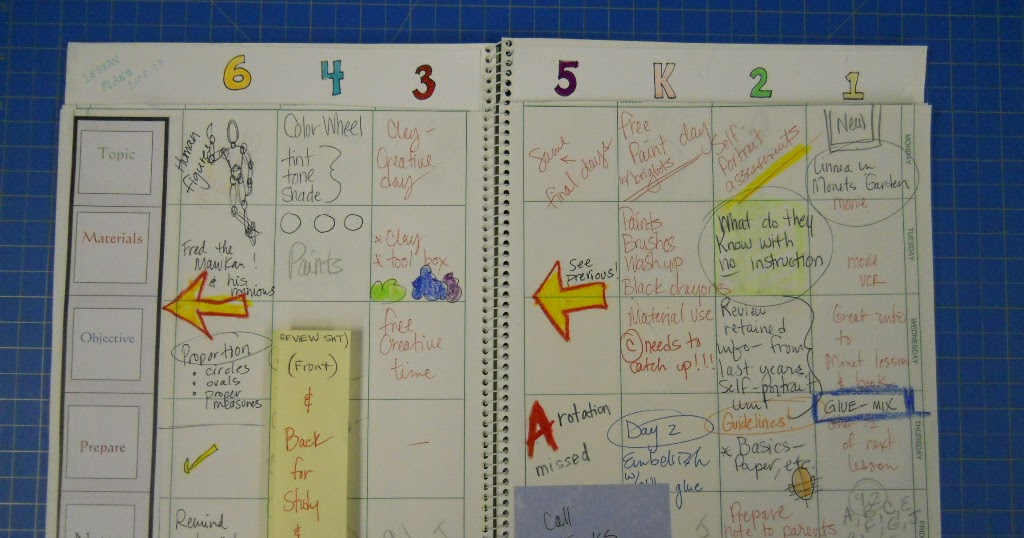 LESSON
PLANS
6 4 3
5 K 2 1
Topic
Materials
Objective
Prepare
Human
Figures
Fred the
Mawkan!
& his
minious
Proportion
• circles
• ovals
• proper
measures
Remind
Color Wheel
tint
tone
shade
Paints
REVIEW SKT)
(Front)
&
Back
for
Study
&
Clay-
Creative
day
* Clay
* tool box
free
Creative
time
Same
final days
See
Previous!
A rotation
missed
Call
free
Paint day
w/ brights
Paints
Brushes
Wash up
Black crayons
Material Use
C needs to
catch up!!!!
Day 2
Embelish
w/ glue
Self-
Portrait
assessments
What do they
Know with
no instruction
Review
retained
info- from
last years
Self-portrait
unit
Guidelines!
* Basics-
Paper, etc.
Prepare
note to parents
New
Linnea in
Monets Garden
movie
movie
VCR
Great intro
to
Monet lesson
& books
GLUE-MIX
of next
lesson
MONDAY
TUESDAY
WEDNESDAY
THURSDAY